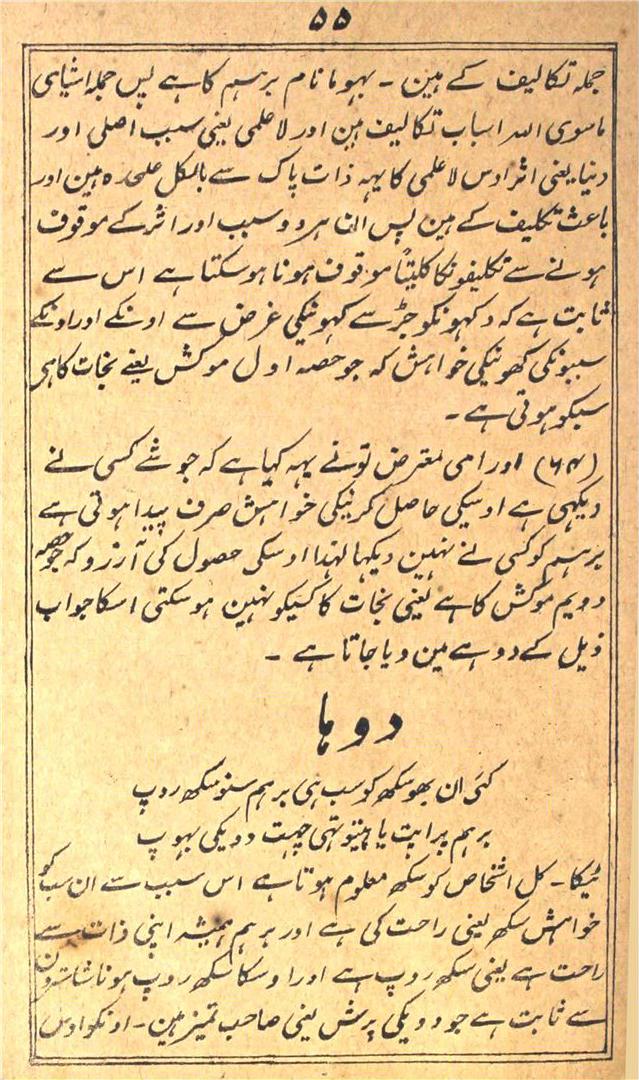 ۵۵
جملہ تکالیف کے ہین ۔ بہوما نام برہم کا ہے پس جملہ اشیای
ماسوی اللہ اسباب تکالیف ہین اور لا علمی یعنی سبب اصلی اور
دنیا یعنی اثر اوس لاعلمی کا یہہ ذات پاک سے بالکل علحدہ ہین اور
باعث تکلیف کے ہین پس ان ہر دو سبب اور اثر کے موقوف
ہونے سے تکلیفونکا کلیتاً موقوف ہونا ہوسکتا ہے اس سے
ثابت ہے کہ دکہونکو جڑ سے کہونیکی غرض سے اونکے اور اونکے
سببونکی کھونیکی خواہش کہ جو حصہ اول موکش یعنے نجات کا ہی
سبکو ہوتی ہے ۔
(۶۴) اور ای معترض تونے یہہ کہا ہے کہ جو شے کسی نے
دیکہی ہے اوسیکی حاصل کرنیکی خواہش صرف پیدا ہوتی ہے
برہم کو کسی نے نہین دیکہا لہذا اوسکی حصول کی آرزو کہ جو حصہ
دویم موکش کا ہے یعنی نجات کا کسیکو نہین ہوسکتی اسکا جواب
ذیل کے دوہے مین دیا جاتا ہے ۔
دوہا
کئی ان بھو سکھ کو سب ہی برہم سنو سکھ روپ
برہم پراپت یا ہیتو تہی چہت دویکی بہوپ
ٹیکا ۔ کل اشخاص کو سکھ معلوم ہوتا ہے اس سبب سے ان سب کو
خواہش سکھ یعنی راحت کی ہے اور برہم ہمیشہ اپنی ذات سے
راحت ہے یعنی سکھ روپ ہے اور اوسکا سکھ روپ ہونا شاسترون
سے ثابت ہے جو دویکی پرش یعنی صاحب تمیز ہین ۔ اونکو اوس